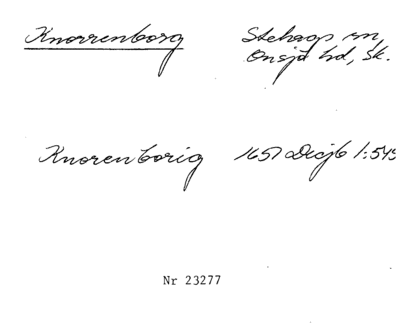 Knorrenborg Stehags sn,
Onsjö hd, Sk.
Knorenborig 1657 Decjb 1:545
Nr 23277